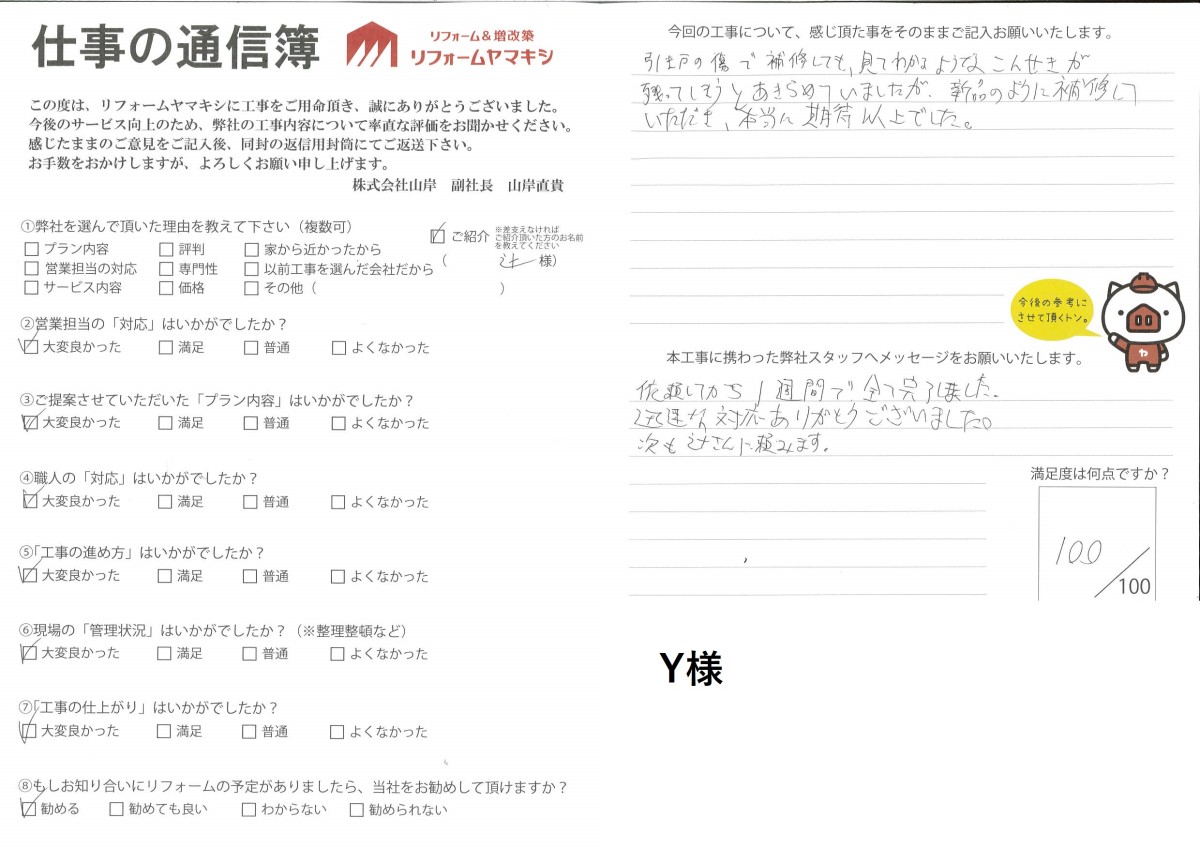 仕事の通信簿
リフォーム&増改築
リフォームヤマキシ
この度は、リフォームヤマキシに工事をご用命頂き、誠にありがとうございました。
今後のサービス向上のため、弊社の工事内容について率直な評価をお聞かせください。
感じたままのご意見をご記入後、同封の返信用封筒にてご返送下さい。
お手数をおかけしますが、よろしくお願い申し上げます。
株式会社山岸 副社長 山岸直貴
①弊社を選んで頂いた理由を教えて下さい(複数可)
☐ プラン内容 ☐ 評判 ☐ 家から近かったから
☐ 営業担当の対応 ☐ 専門性 ☐ 以前工事を選んだ会社だから
☐ サービス内容 ☐ 価格 ☐ その他( )
☑ ご紹介 ※差支えなければ
ご紹介頂いた方のお名前
を教えてください
(辻 様)
②営業担当の「対応」はいかがでしたか?
☑ 大変良かった ☐ 満足 ☐ 普通 ☐ よくなかった
③ご提案させていただいた「プラン内容」はいかがでしたか?
☑ 大変良かった ☐ 満足 ☐ 普通 ☐ よくなかった
④職人の「対応」はいかがでしたか?
☑ 大変良かった ☐ 満足 ☐ 普通 ☐ よくなかった
⑤「工事の進め方」はいかがでしたか?
☑ 大変良かった ☐ 満足 ☐ 普通 ☐ よくなかった
⑥現場の「管理状況」はいかがでしたか?(※整理整頓など)
☑ 大変良かった ☐ 満足 ☐ 普通 ☐ よくなかった
⑦「工事の仕上がり」はいかがでしたか?
☑ 大変良かった ☐ 満足 ☐ 普通 ☐ よくなかった
⑧もしお知り合いにリフォームの予定がありましたら、当社をお勧めして頂けますか?
☑ 勧める ☐ 勧めても良い ☐ わからない ☐ 勧められない
今回の工事について、感じ頂た事をそのままご記入お願いいたします。
引き戸の傷で補修しても、見てわかるようなこんせきが
残ってしまうとあきらめていましたが、新品のように補修して
いただき、本当に期待以上でした。
今後の参考に
させて頂くトン。
ヤ
本工事に携わった弊社スタッフへメッセージをお願いいたします。
依頼してから1週間で全て完了しました。
迅速な対応ありがとうございました。
次も辻さんに頼みます。
満足度は何点ですか?
100/100
Y様